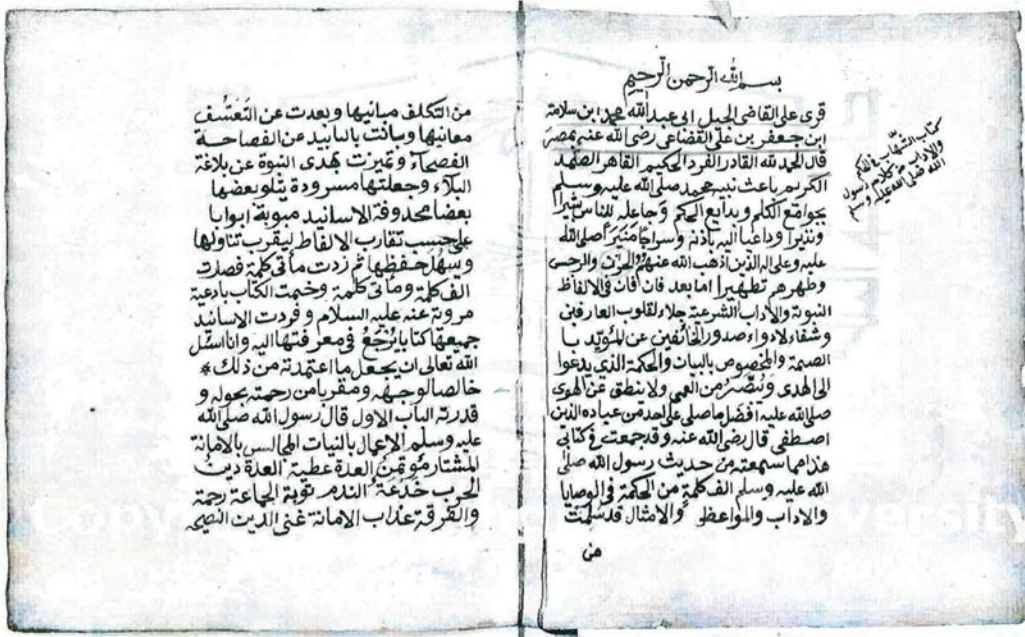 بسم الله الرحمن الرحيم
قرئ على القاضي الجليل ابي عبد الله محمد ابن سلامة
ابن جعفر بن علي القضاعي رضى الله عنه بمصر
قال الحمد لله القادر الفرد الحكيم القاهر الصمد
الكريم باعث نبيه محمد صلى الله عليه وسلم
بجوامع الكلم وبدايع الحكم وجاعله للناس بشيرا
ونذيرا وداعيا اليه باذنه وسراجا منيرا صلى الله
عليه وعلى اله الذين اذهب الله عنهم والرجس
وطهرهم تطهيرا اما بعد فان في الالفاظ
النبوية والاداب الشرعية جلاء لقلوب العارفين
وشفاء لادواء صدور الخائفين عن المؤيد با
لصمة والمخصوص بالبيان والحكمة الذي يدعوا
الى الهدى ويبصر من العمى ولا ينطق عن الهوى
صلى الله عليه افضل ما صلى على احد من عباده الذين
اصطفى قال رضى الله عنه وقد جمعت في كتابي
هذا مما سمعته من حديث رسول الله صلى
الله عليه وسلم الف كلمة من الحكمة في الوصايا
والاداب والمواعظ والامثال قد سلمت
من
كتاب الشهاب في الحكم
والاداب من كلام رسول
الله صلى الله عليه وسلم
من التكلف مبانيها وبعدت عن التعسف
معانيها وبانت بالتاييد عن الفصاحة
الفصحاء وتميزت بهدى النبوة عن بلاغة
البلاء وجعلتها مسرودة يتلو بعضها
بعضا محذوفة الاسانيد مبوبة ابوابا
على حسب تقارب الالفاظ ليقرب تناولها
وسهل حفظها ثم زدت مأتى كلمة فصارت
الف كلمة ومأتى كلمة وختمت الكتاب بادعية
مروية عنه عليه السلام وفردت الاسانيد
جميعها كتابا يرجع في معرفتها اليه وانا اسئل
الله تعالى ان يجعل ما اعتمدته من ذلك *
خالصا لوجهه ومقربا من رحمته بحوله و
قدرته الباب الاول قال رسول الله صلى الله
عليه وسلم الاعمال بالنيات المجالس بالامانة
المشتار مؤتمن العدة عطية العدة دين
الحرب خدعة الندم توبة الجماعة رحمة
والفرقة عذاب الامانة غنى الدين النصيحة